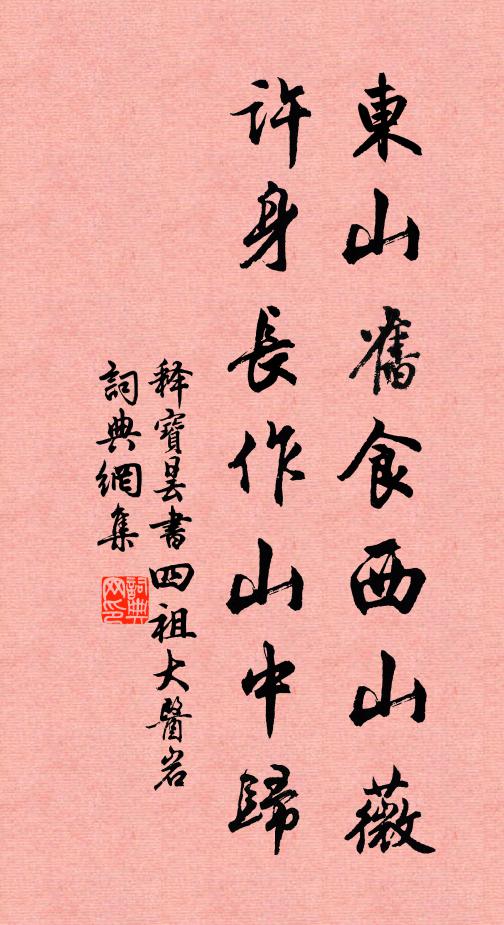 東山舊食西山薇
許身長作山中歸
释寶曇書四祖大醫岩
詞典網集
詞典网印